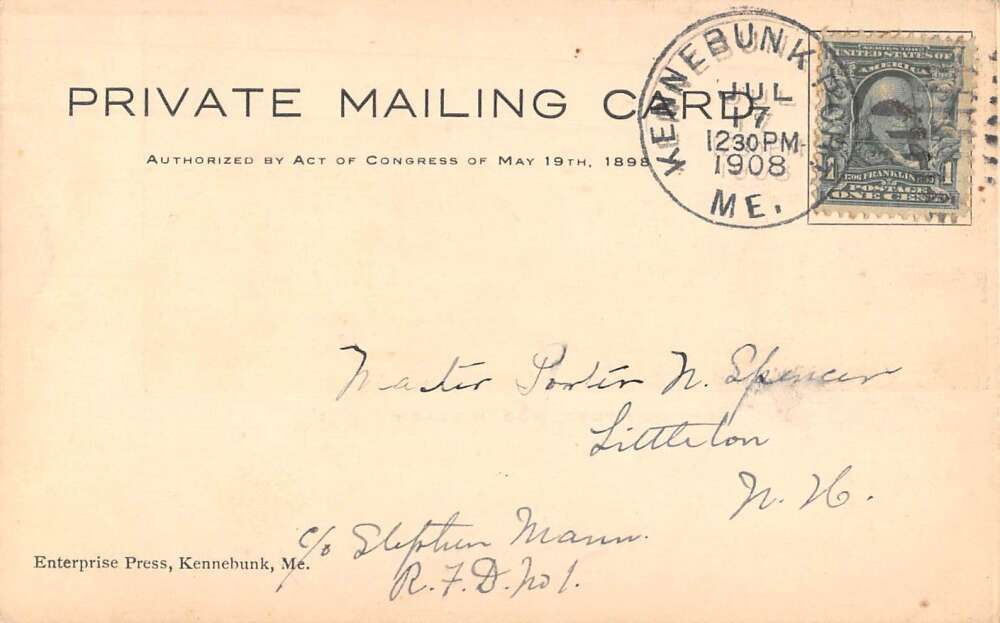 PRIVATE MAILING CARD
AUTHORIZED BY ACT OF CONGRESS OF MAY 19TH, 1898
KENNEBUNKPORT
JUL
17
1230PM
1908
ME.
SERIES 1902
UNITED STATES OF
AMERICA
1 FRANKLIN 1
POSTAGE
ONE CENT
Master Porter N. Spencer
Littleton
N. H.
c/o Stephen Mann.
R.F.D. No 1.
Enterprise Press, Kennebunk, Me.